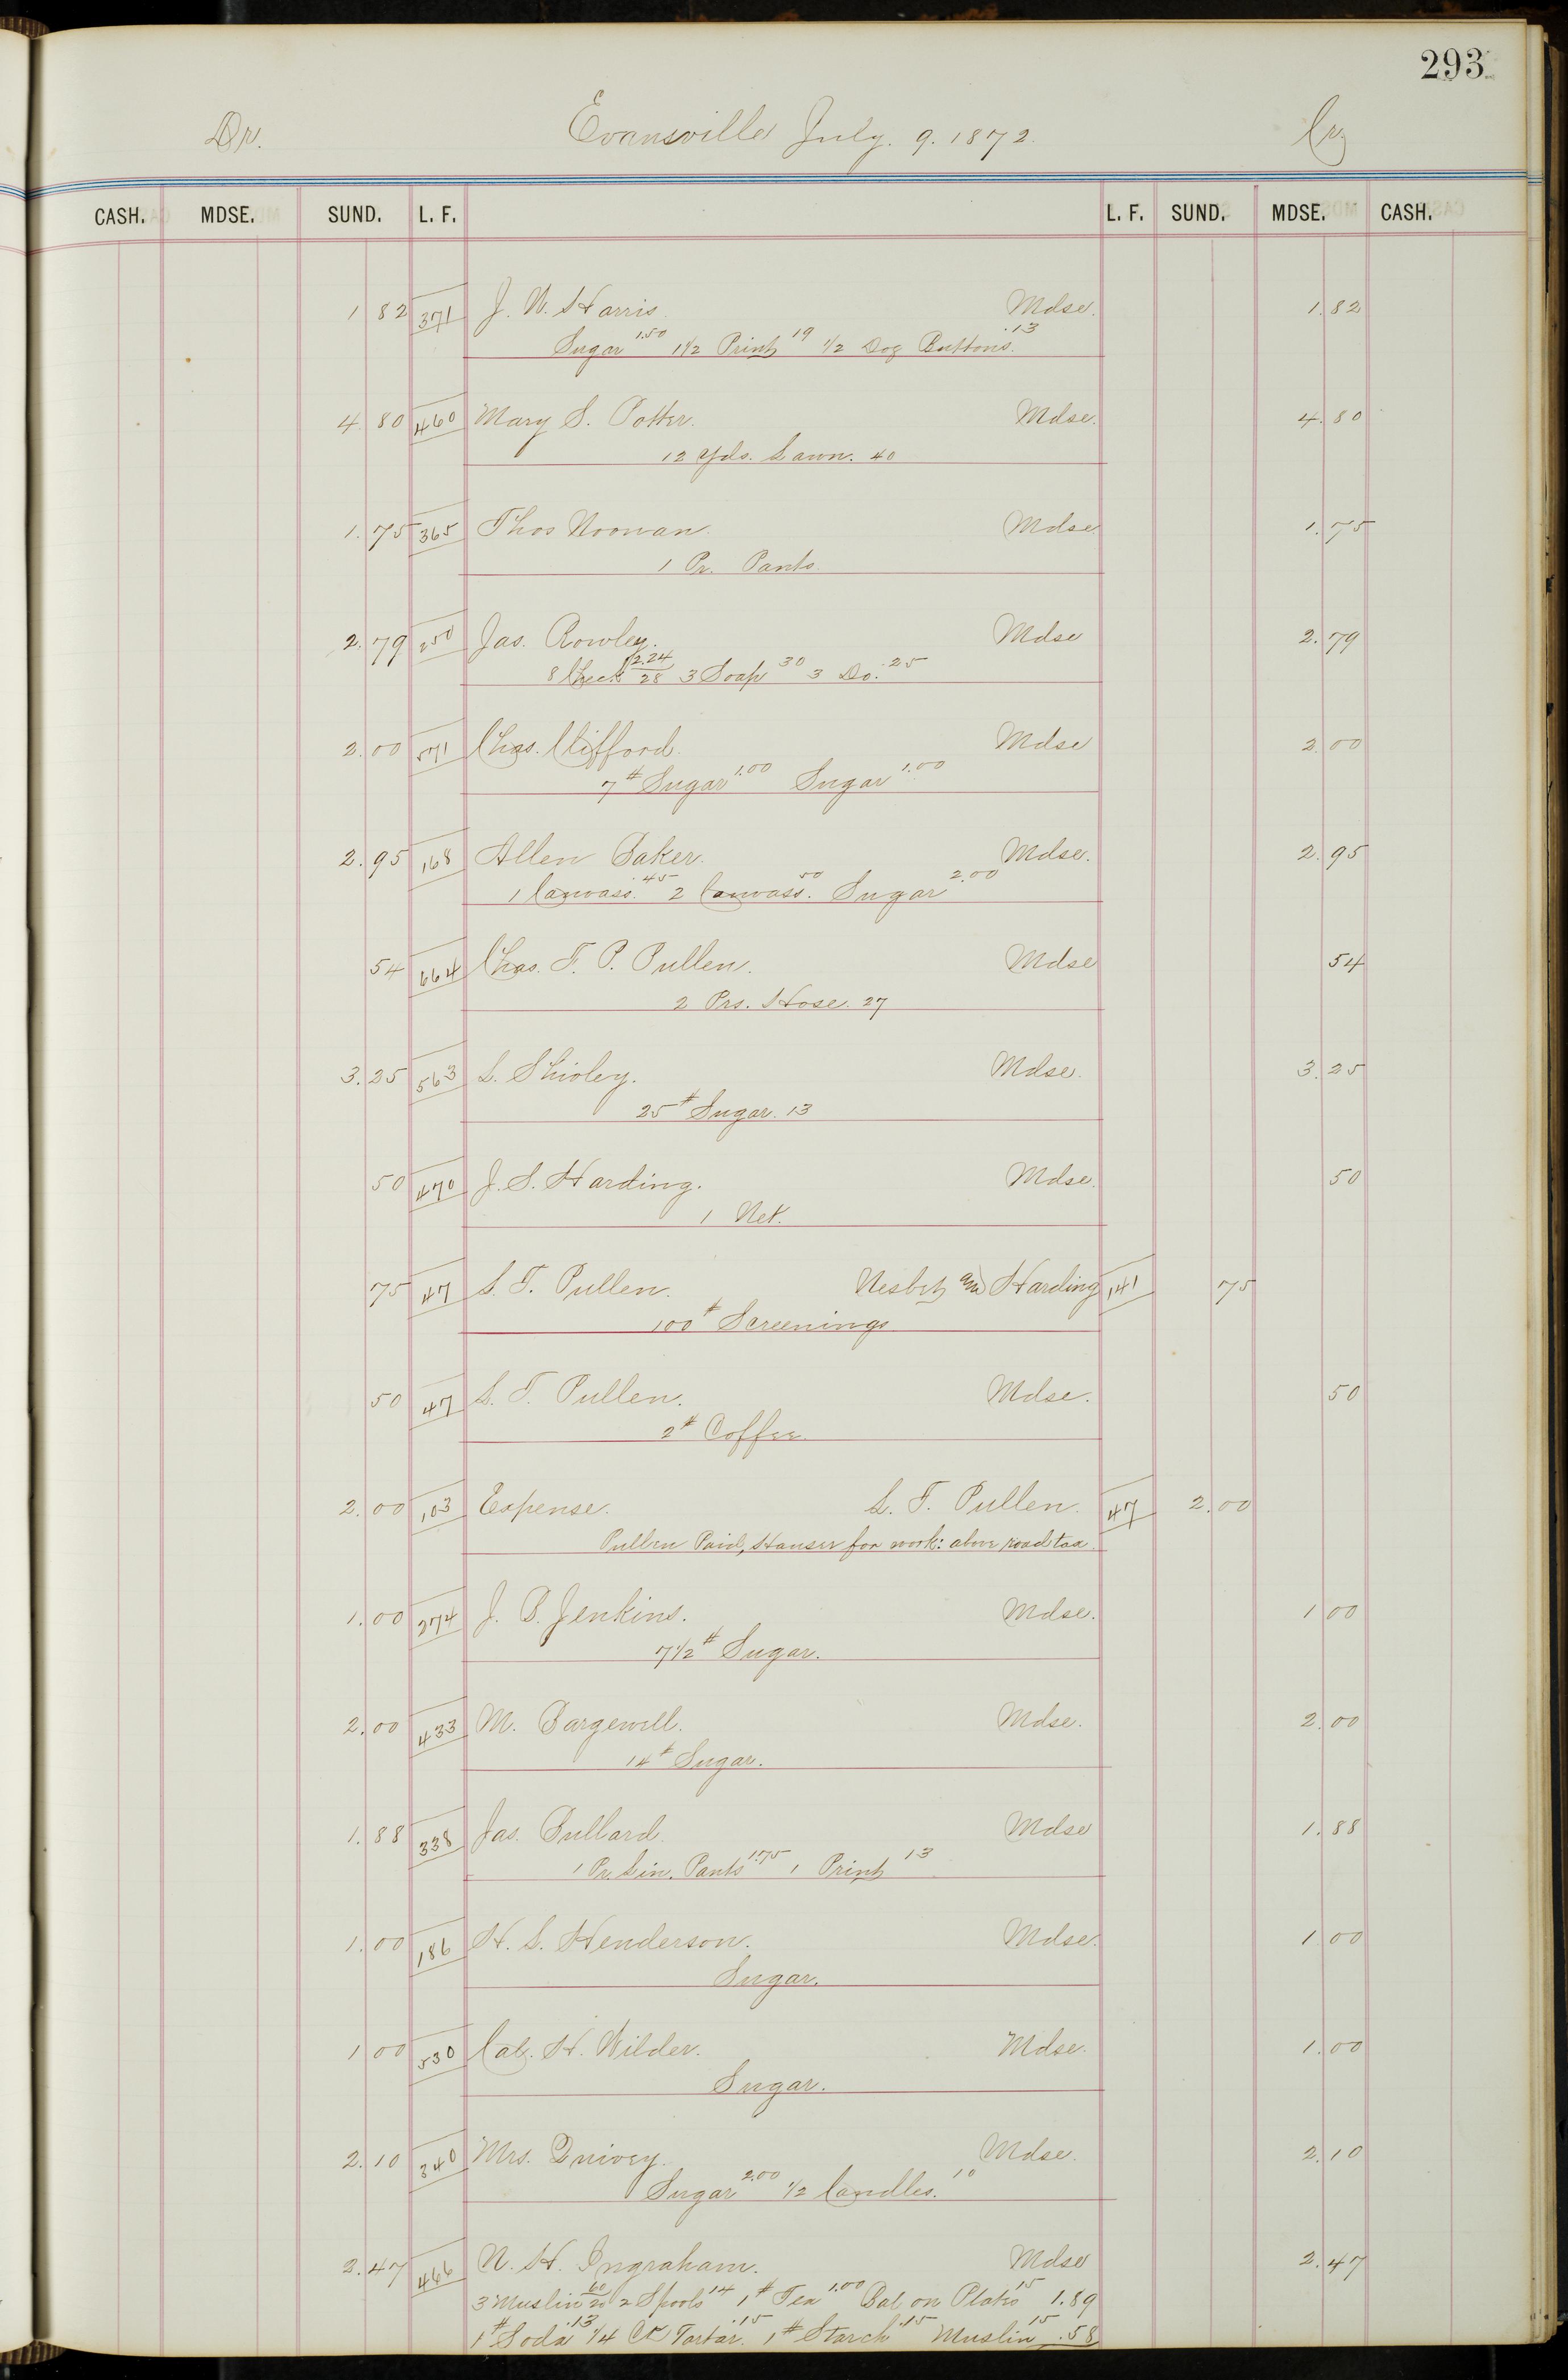 293
Dr. Evansville July. 9. 1872. Cr.
CASH. MDSE. SUND. L. F. L. F. SUND. MDSE. CASH.
1 82 371 J. W. Harris. Mdse. 1.82
Sugar 1.50 1 1/2 Print 19 1/2 Doz Buttons. .13
4.80 460 Mary S. Potter. Mdse. 4.80
12 Yds. Lawn. 40
1.75 365 Thos Noonan. Mdse. 1.75
1 Pr. Pants.
2.79 250 Jas. Rowley. Mdse 2.79
8 Check 2.24 28 3 Soap 30 3 Do. .25
2.00 571 Chas. Clifford. Mdse 2.00
7# Sugar 1.00 Sugar 1.00
2.95 168 Allen Baker. Mdse. 2.95
1 Canvass. .45 2 Canvass. 50 Sugar 2.00
54 664 Chas. F. P. Pullen. Mdse 54
2 Prs. Hose. 27
3.25 563 L. Mdse. 3.25
25# Sugar. 13
50 470 J. S. Harding. Mdse. 50
1 Net.
75 47 L. T. Pullen. and Harding 141 75
100# Screenings
50 47 L. T. Pullen. Mdse. 50
2# Coffee.
2.00 103 Expense. L. T. Pullen. 47 2.00
Pullen Paid, for work: above road tax.
1.00 274 J. B. Jenkins. Mdse. 1 00
7 1/2# Sugar.
2.00 433 M. Bargewell. Mdse. 2.00
14# Sugar.
1.88 338 Jas. Bullard. Mdse 1.88
1 Pr. Lin. Pants 1.75 1 Print 13
1.00 186 H. S. Henderson. Mdse. 1 00
Sugar.
1 00 530 Cal. H. Wilder. Mdse. 1.00
Sugar.
2.10 340 Mrs. Quivey. Mdse. 2.10
Sugar 2.00 1/2 Candles. 10
2.47 466 N. H. Ingraham. Mdse 2.47
3 Muslin 60 20 2 Spools 14 1# Tea 1.00 Bal on Plates 15 1.89
1# Soda .13 1/4 Cr Tartar. .15 1# Starch .15 Muslin 15 .58